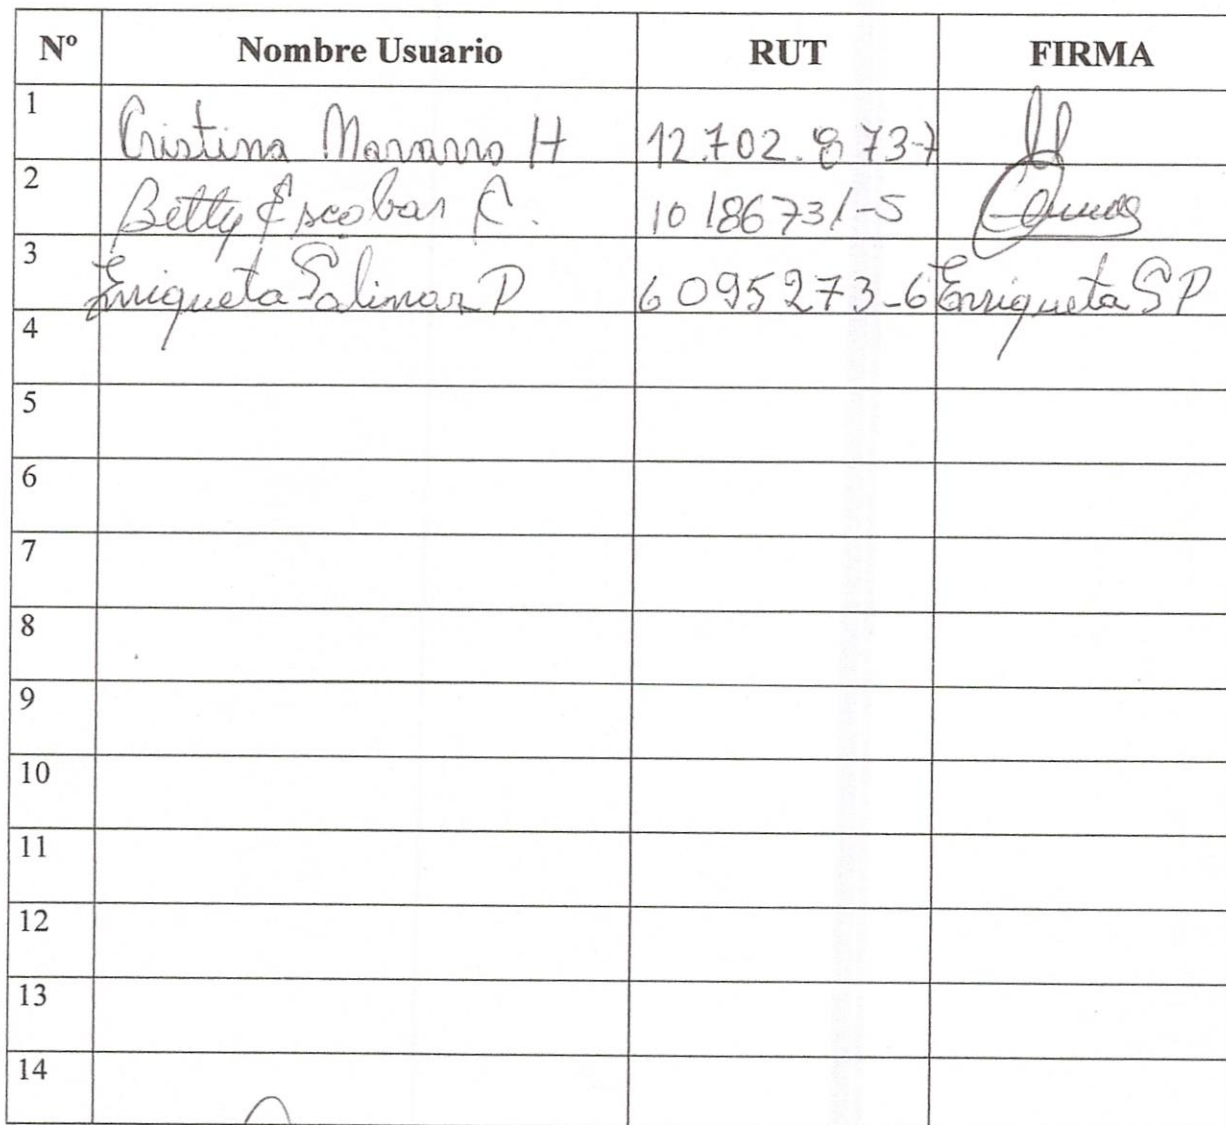 Nº Nombre Usuario RUT FIRMA
1 Cristina Navarro H 12.702.873-7
2 Betty Escobar C. 10186731-5
3 Enriqueta Salinas P 6095273-6 Enriqueta S P
4
5
6
7
8
9
10
11
12
13
14